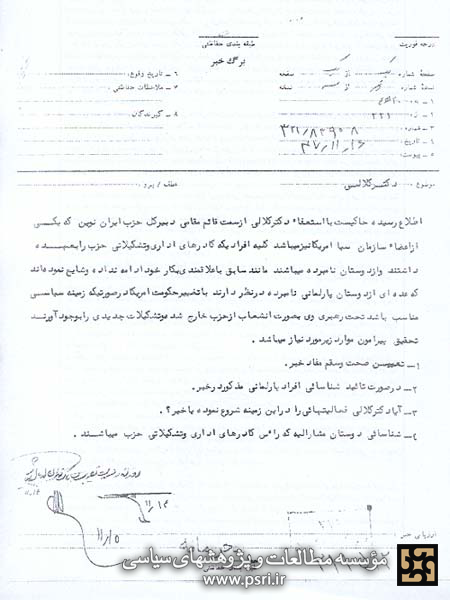 درجه فوریت
طبقه بندی حفاظتی
برگ خبر
صفحه شماره یک از یک صفحه
نسخه شماره از نسخه
۱ـ به
۲ـ از ۳۲۱
۳ـ شماره ۳۲۱/۸۳۹۰۸
۴ـ تاریخ ۴۷/۱۱/۱۶
۵ـ پیوست
۶ـ تاریخ وقوع
۷ـ ملاحظات حفاظتی
۸ـ گیرندگان
موضوع : دکتر کلالی
عطف / پیرو
اطلاع رسیده حاکیست با استعفاء دکتر کلالی از سمت قائم مقامی دبیر کل حزب ایران نوین که یکی
از اعضاء سازمان سیا امریکا نیز میباشد کلیه افرادیکه کادرهای اداری و تشکیلاتی حزب را بعهده
داشتند و از دوستان نامبرده میباشند مانند سابق با علاقمندی بکار خود ادامه نداده و شایع نموده اند
که عده ای از دوستان پارلمانی نامبرده در نظر دارند با تغییر حکومت امریکا در صورتیکه زمینه سیاسی
مناسب باشد تحت رهبری وی بصورت انشعاب از حزب خارج شده و تشکیلات جدیدی را بوجود آورند
تحقیق پیرامون موارد زیر مورد نیاز میباشد .
۱ـ تعیین صحت و سقم مفاد خبر .
۲ـ در صورت تائید شناسائی افراد پارلمانی مذکور در خبر .
۳ـ آیا دکتر کلالی فعالیتهائی را در این زمینه شروع نموده یا خیر ؟ .
۴ـ شناسائی دوستان مشارالیه که راس کادرهای اداری و تشکیلاتی حزب میباشند .
۱۱/۱۴
۱۱/۱۵
ارزیابی خبر
مؤسسه مطالعات و پژوهشهای سیاسی
www.psri.ir